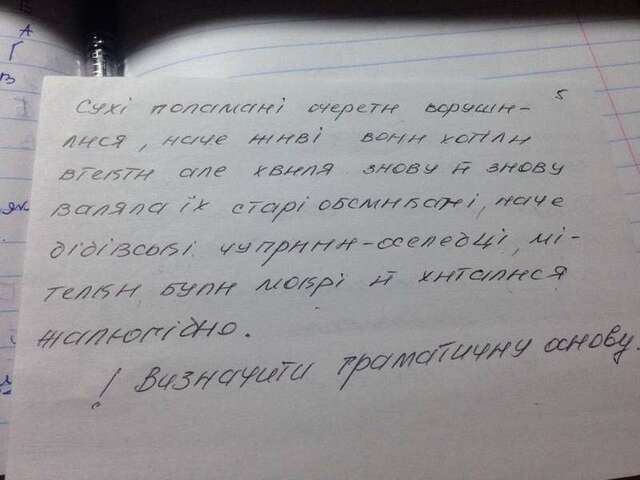 5
Сухі поламані очерети воруши-
лися, наче живі вони хотіли
втекти але хвиля знову й знову
валяла їх старі обсмикані, наче
дідівські чуприни-оселедці, мі-
телки були мокрі й хиталися
жалюгідно.
! Визначити граматичну основу.
А
Ґ
В
як